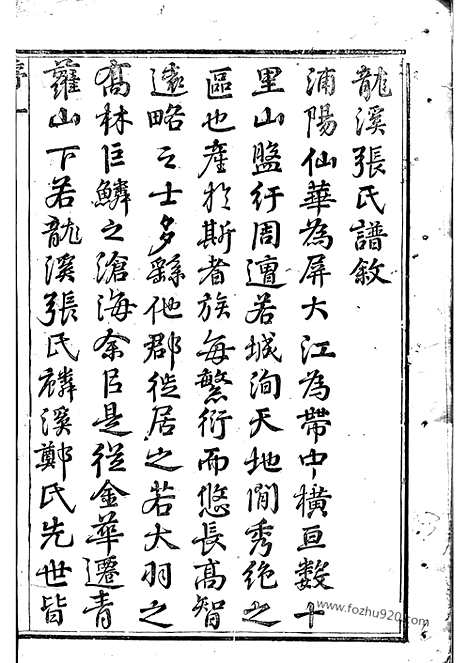 龍溪張氏譜敘
浦陽仙華為屏大江為帶中橫亘數十
里山盤紆周遭若城洵天地間秀絕之
區也產於斯者族每繁衍而悠長高智
遠略之士多繇他郡徙居之若大羽之
喬林巨鱗之滄海余以是從金華遷青
蘿山下若龍溪張氏麟溪鄭氏先世皆
譜
www.fozhu920.com